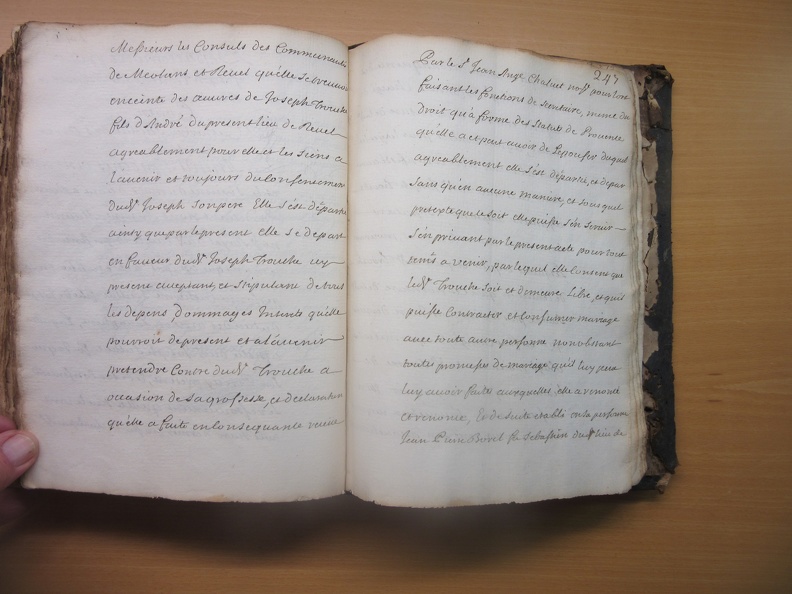 Messieurs les Consuls des Communautés
de Meolans et Revel qu'elle se trouvoit
enceinte des œuvres de Joseph Trouche
fils d'André du present lieu de Revel
agreablement pour elle et les siens a
l'avenir et toujours du consentement
dud.t Joseph son pere Elle s'est départie
ainsy que par le present elle se depart
en faveur dud.t Joseph Trouche icy
present acceptant, et stipulant de tous
les depens dommages Interets qu'elle
pourroit de present et a l'avenir
pretendre Contre dud.t Trouche a
occasion de sa grossesse, et declaration
qu'elle a faite en consequance reçue
247
Par le S.r Jean Ange Chaluet no.re pour lors
faisant les fonctions de Secretaire, meme du
droit qu'a forme des Statuts de Provence
qu'elle a et peut avoir de l'epouser duquel
agreablement elle s'est départie, et depart
sans qu'en aucune maniere, et sous quel
pretexte que ce soit elle puisse s'en servir
s'en privant par le present acte pour tous
tems a venir, par lequel elle consent que
led.t Trouche soit et demeure Libre, et qu'il
puisse Contracter et Consumer mariage
avec toute autre personne nonobstant
toutes promesses de mariage qu'il luy peut
luy avoir faites auxquelles elle a renoncé
et renonce, Et de suite etabli en sa personne
Jean Pierre Borel feu Sebastien dud.t lieu de